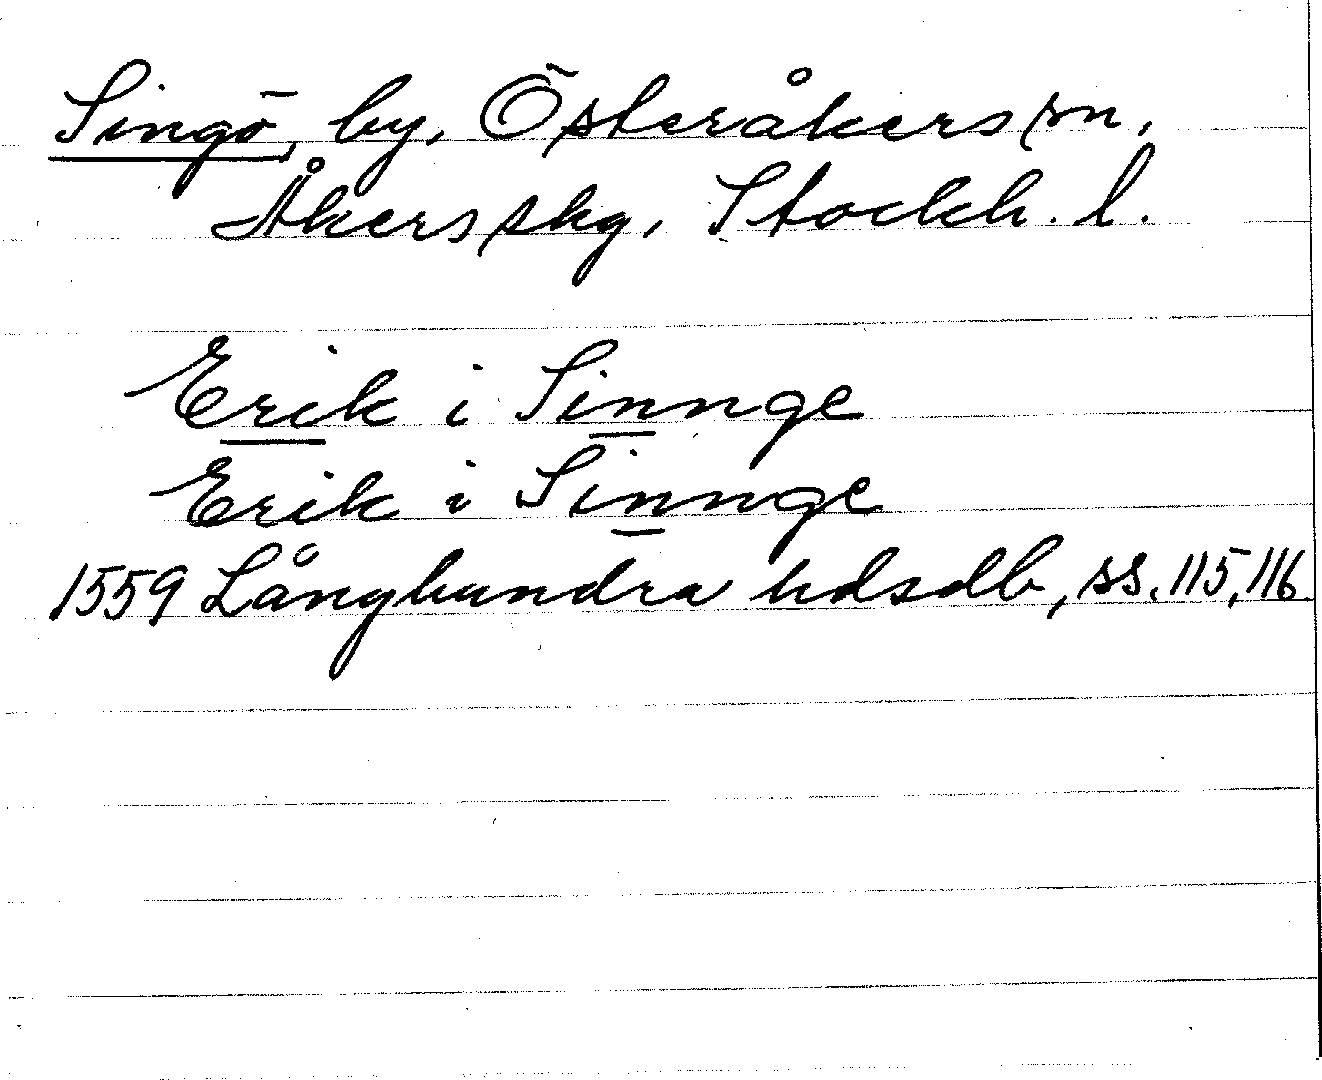 Singö, by, Österåkers sn,
Åkers skg, Stockh. l.
Erik i Sinnge
Erik i Sinnge
1559 Långhundra hdsdb, ss. 115, 116